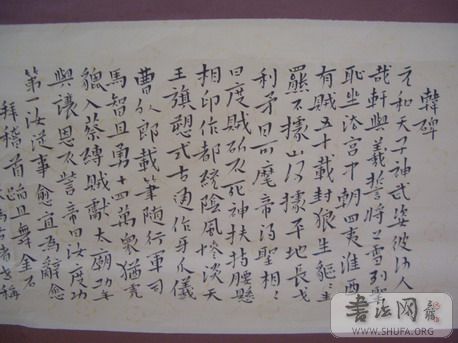 韓碑
元和天子神武姿彼何人
哉軒與羲誓將上雪列聖
恥坐法宮中朝四夷淮西
有賊五十載封狼生貙〻生
羆不據山河據平地長戈
利矛日可麾帝得聖相〻
曰度賊斫不死神扶持腰懸
相印作都統陰風慘淡天
王旗愬武古通作牙爪儀
曹外郎載筆隨行軍司
馬智且勇十四萬眾猶虎
貔入蔡縛賊獻太廟功無
與讓恩不訾帝曰汝度功
第一汝從事愈宜為辭愈
拜稽首蹈且舞金石
為古者世稱
书法网
WWW.SHUFA.ORG